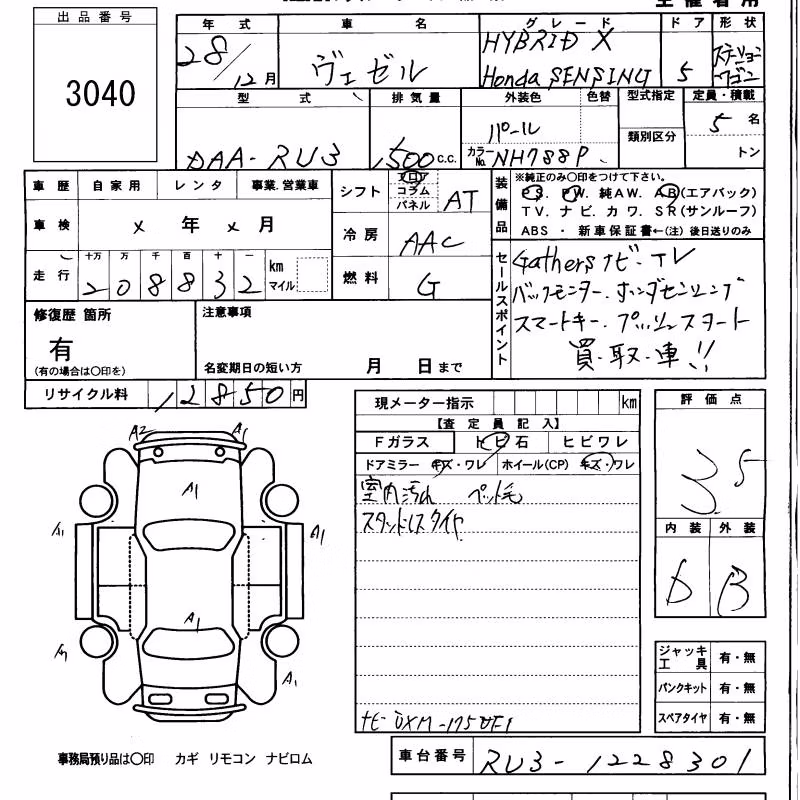 出品番号
3040
年式 車名 グレード ドア 形状
28/12月 ヴェゼル HYBRID X Honda SENSING 5 ステーションワゴン
型式 排気量 外装色 色替 型式指定 定員・積載
DAA-RU3 1,500 c.c. パール 類別区分 5 名
カラーNo. NH788P トン
車歴 自家用 レンタ 事業.営業車
シフト フロア コラム パネル AT
装備品 ※純正のみ〇印をつけて下さい。
PS. PW. 純AW. AB(エアバック)
TV. ナビ. カワ. SR(サンルーフ)
ABS ・ 新車保証書←(注) 後日送りのみ
車検 x 年 x 月
冷房 AAC
走行 十万 万 千 百 十 一
208832 km マイル
燃料 G
セールスポイント
Gathersナビ・TV
バックモニター・ホンダセンシング
スマートキー・プッシュスタート
買・取・車!!
修復歴 箇所
有
(有の場合は〇印を)
注意事項
名変期日の短い方 月 日まで
リサイクル料 12850円
現メーター指示 km
【査定員記入】
Fガラス トビ石 ヒビワレ
ドアミラー キズ・ワレ ホイール(CP) キズ・ワレ
室内汚れ ペット毛
スタッドレスタイヤ
ナビ DXM-175VFI
評価点
3.5
内装 外装
D B
A2 A1
A1
A1 A1
A1
A1 A1
ジャッキ工具 有・無
パンクキット 有・無
スペアタイヤ 有・無
事務局預り品は〇印 カギ リモコン ナビロム
車台番号 RU3-1228301